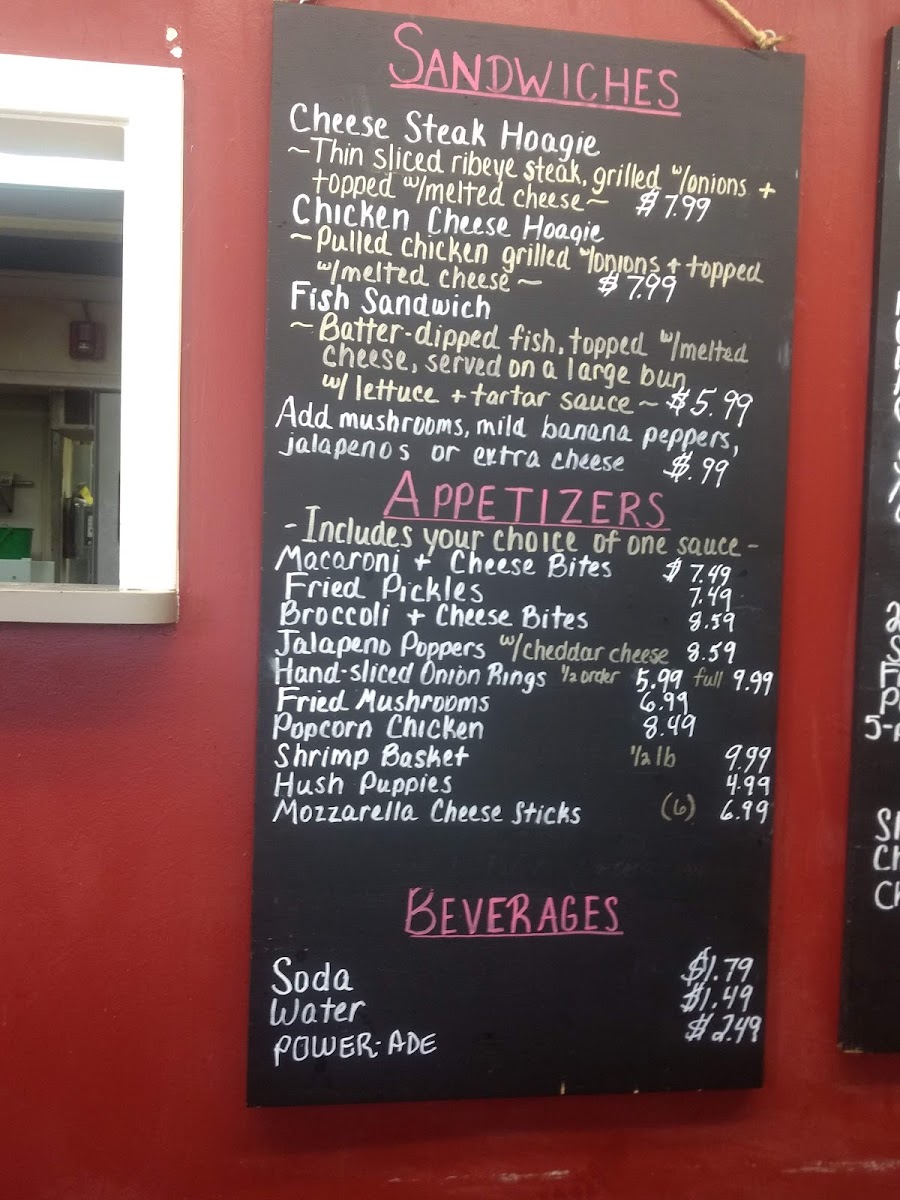 SANDWICHES
Cheese Steak Hoagie
~Thin sliced ribeye steak, grilled w/onions +
topped w/melted cheese~ $7.99
Chicken Cheese Hoagie
~Pulled chicken grilled w/onions + topped
w/melted cheese~ $7.99
Fish Sandwich
~Batter-dipped fish, topped w/melted
cheese, served on a large bun
w/ lettuce + tartar sauce~ $5.99
Add mushrooms, mild banana peppers,
jalapenos or extra cheese $.99
APPETIZERS
-Includes your choice of one sauce-
Macaroni + Cheese Bites $7.49
Fried Pickles 7.49
Broccoli + Cheese Bites 8.59
Jalapeno Poppers w/cheddar cheese 8.59
Hand-sliced Onion Rings 1/2 order 5.99 full 9.99
Fried Mushrooms 6.99
Popcorn Chicken 8.49
Shrimp Basket 1/2 lb 9.99
Hush Puppies 4.99
Mozzarella Cheese Sticks (6) 6.99
BEVERAGES
Soda $1.79
Water $1.49
POWER-ADE $2.49